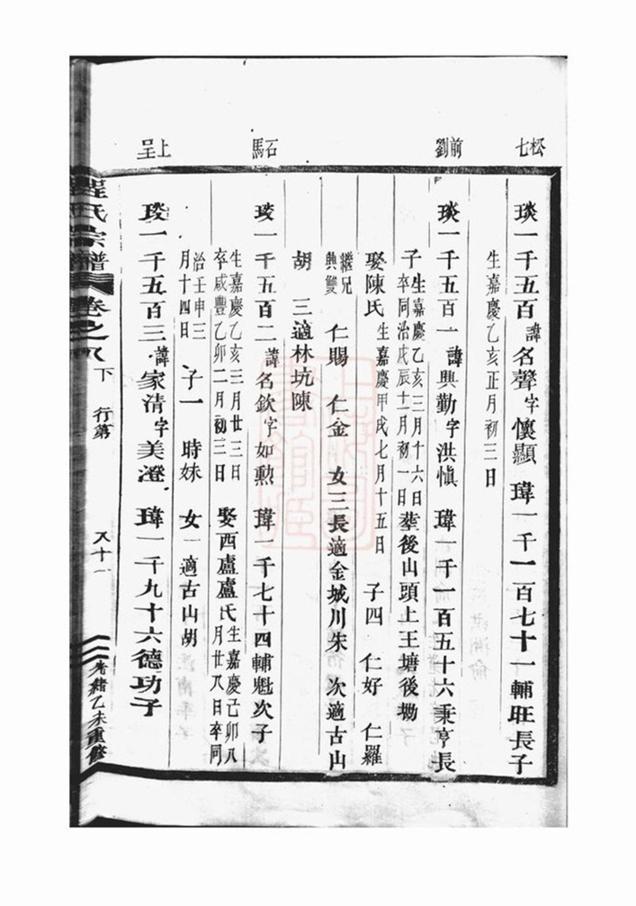 松七
前劉
石馬
上呈
琰一千五百諱名聲字懷顯 瑋一千一百七十一輔旺長子
生嘉慶乙亥正月初三日
琰一千五百一諱興勤字洪慎 瑋一千一百五十六秉亨長
子生嘉慶乙亥三月十六日卒同治戊辰十一月初一日葬後山頭上王塘後塝
娶陳氏生嘉慶甲戌七月十五日 子四 仁好 仁羅
繼兄興雙 仁賜 仁金 女三長適金城川朱 次適古山
胡 三適林坑陳
琰一千五百二諱名欽字如勲 瑋一千七十四輔魁次子
生嘉慶乙亥三月廿三日卒咸豐乙卯二月初三日 娶西盧盧氏生嘉慶己卯八月廿八日卒同
治壬申三月十四日 子一 時妹 女一適古山胡
琰一千五百三諱家清字美澄 瑋一千九十六德功子
程氏宗譜 卷之八 下 行第 八十一 光緒乙未重修